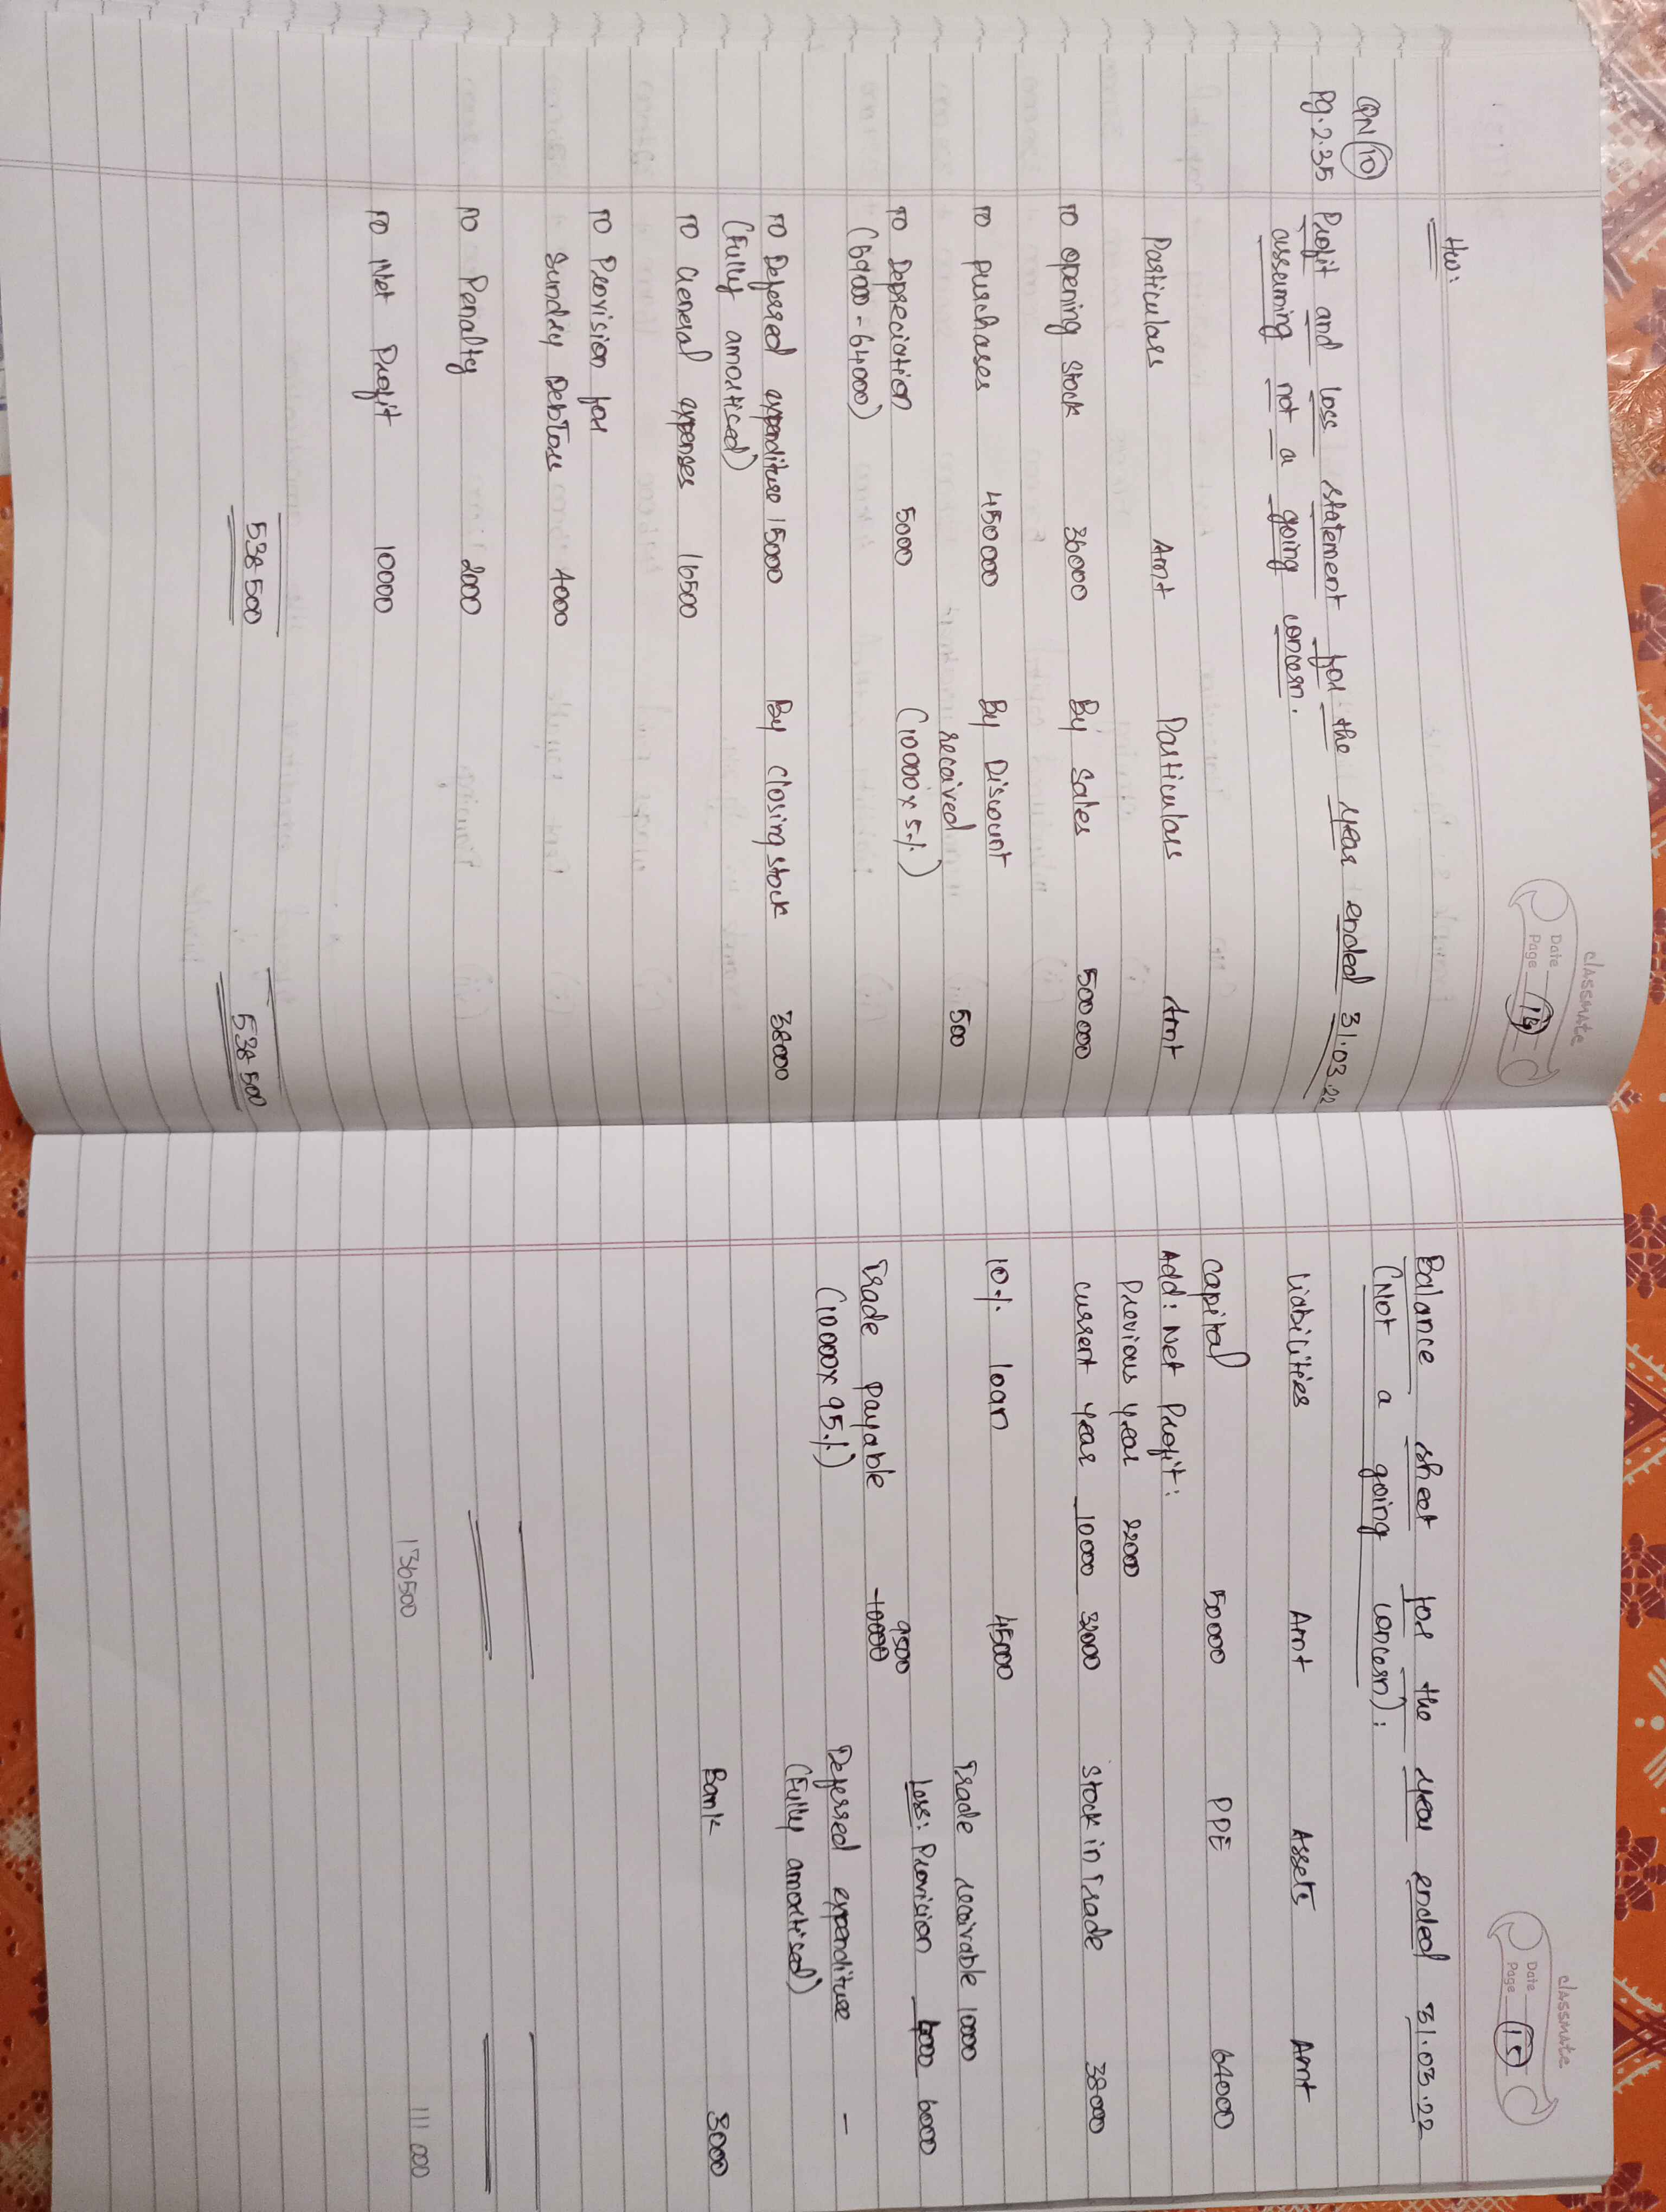 classmate
Date
Page 14
HW:
QN 10
Pg. 2.35
Profit and loss statement for the year ended 31.03.22
assuming not a going concern.
Particulars Amt Particulars Amt
To opening stock 36000 By Sales 500000
To purchases 450000 By Discount
received 500
To Depreciation 5000 (10000x5%)
(69000-64000)
To Deferred expenditure 15000 By closing stock 38000
(Fully amortised)
To General expenses 16500
To Provision for
Sundry Debtors 4000
To Penalty 2000
To Net Profit 10000
538500 538500
classmate
Date
Page 15
Balance sheet for the year ended 31.03.22
(Not a going concern):
Liabilities Amt Assets Amt
capital 50000 PPE 64000
Add: Net Profit:
Previous year 22000
current year 10000 32000 stock in Trade 38000
10% loan 45000
Trade receivable 10000
9500 Less: Provision 4000 6000
Trade payable 10000
(10000x95%) Deferred expenditure –
(Fully amortised)
Bank 3000
136500 111000